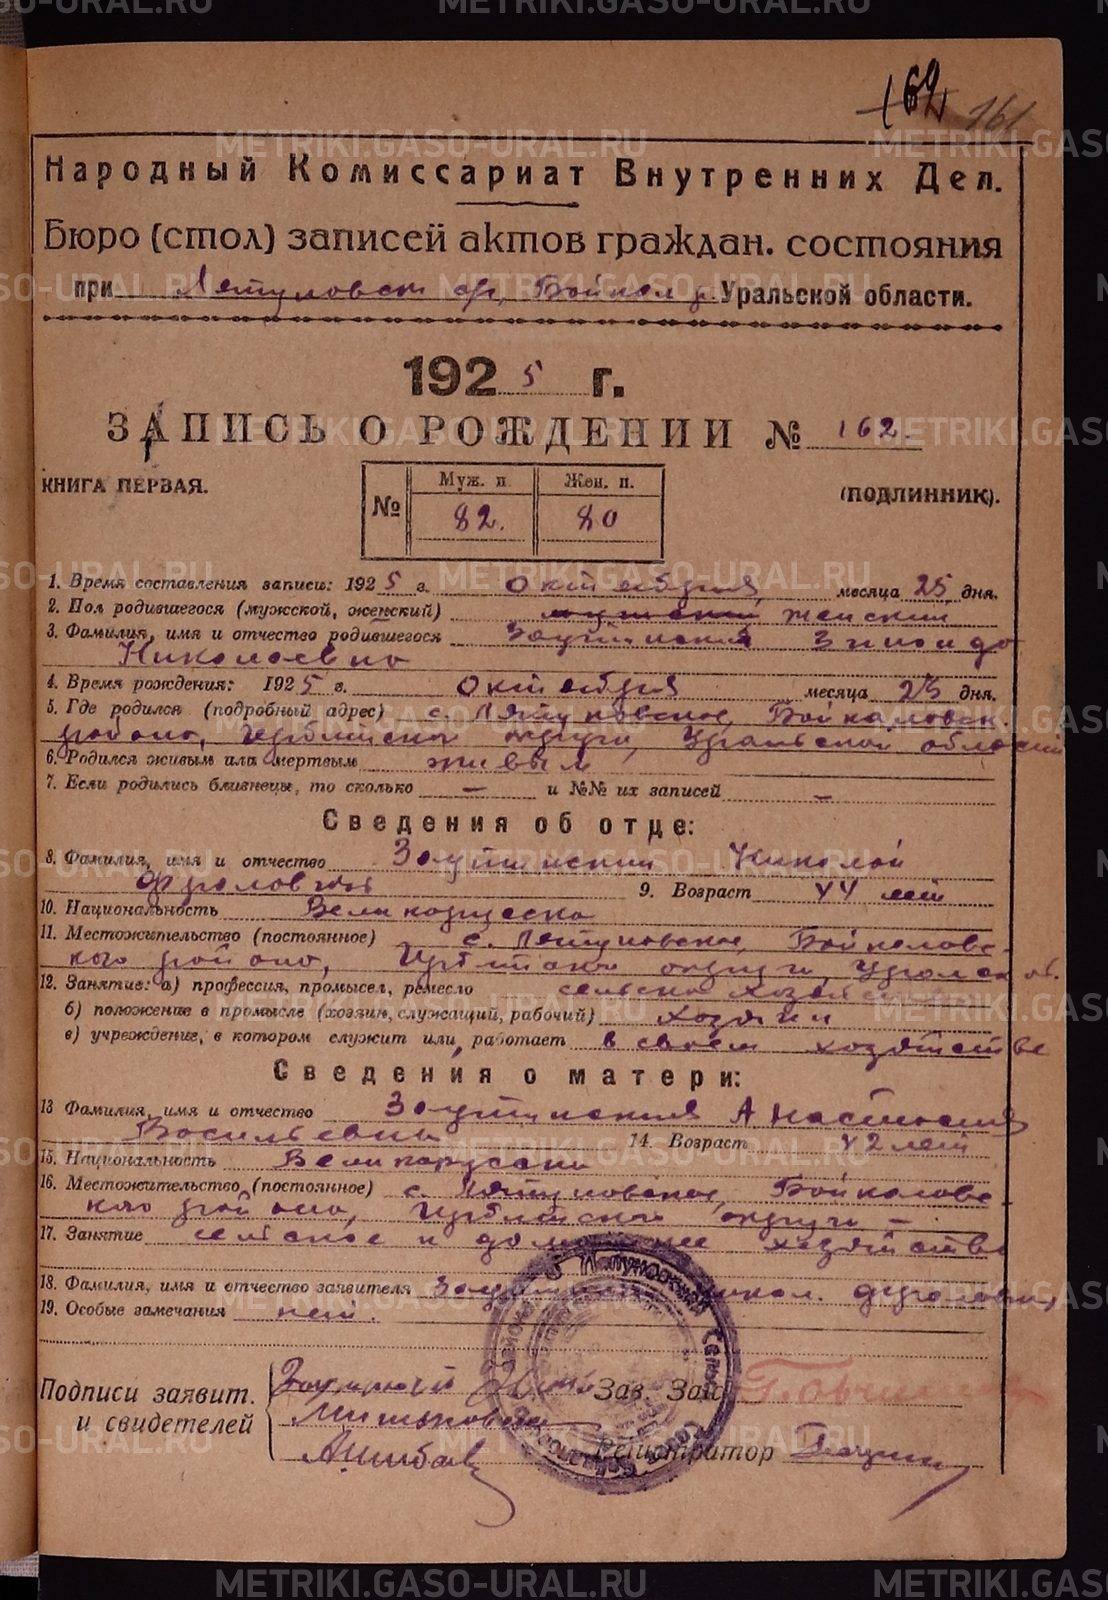 162 161
Народный Комиссариат Внутренних Дел.
Бюро (стол) записей актов граждан. состояния
при Ляпуновск ср, Байкал р. Уральской области.
1925 г.
ЗАПИСЬ О РОЖДЕНИИ № 162.
КНИГА ПЕРВАЯ.
(ПОДЛИННИК).
№ Муж. п. Жен. п.
82. 80
1. Время составления записи: 1925 г. Октебрия месяца 25 дня.
2. Пол родившегося (мужской, женский) мужской женский
3. Фамилия, имя и отчество родившегося Заутинская Зиноида
Николаевна
4. Время рождения: 1925 г. Октебрия месяца 25 дня.
5. Где родился (подробный адрес) с. Ляпуновское, Байкаловск.
района, Ирбитского округа, Уральской области
6. Родился живым или мертвым живым
7. Если родились близнецы, то сколько — и №№ их записей —
Сведения об отце:
8. Фамилия, имя и отчество Заутинский Николай
Фролович 9. Возраст 44 лет
10. Национальность Великорусско
11. Местожительство (постоянное) с. Ляпуновское, Байкаловс-
кого района, Ирбитского округа, Уральск об.
12. Занятие: а) профессия, промысел, ремесло сельское хозяйство
б) положение в промысле (хозяин, служащий, рабочий) хозяин
в) учреждение, в котором служит или работает в своем хозятстве
Сведения о матери:
13 Фамилия, имя и отчество Заутинская Анастасия
Васильевна 14. Возраст 42 лет
15. Национальность Великорусско
16. Местожительство (постоянное) с. Ляпуновское, Байкаловс-
кого района, Ирбитского округа —
17. Занятие сельское и домашнее хозятство
18. Фамилия, имя и отчество заявителя Никол. Фролович
19. Особые замечания нет.
Подписи заявит.
и свидетелей
Зав. Заг
Регистратор
METRIKI.GASO-URAL.RU